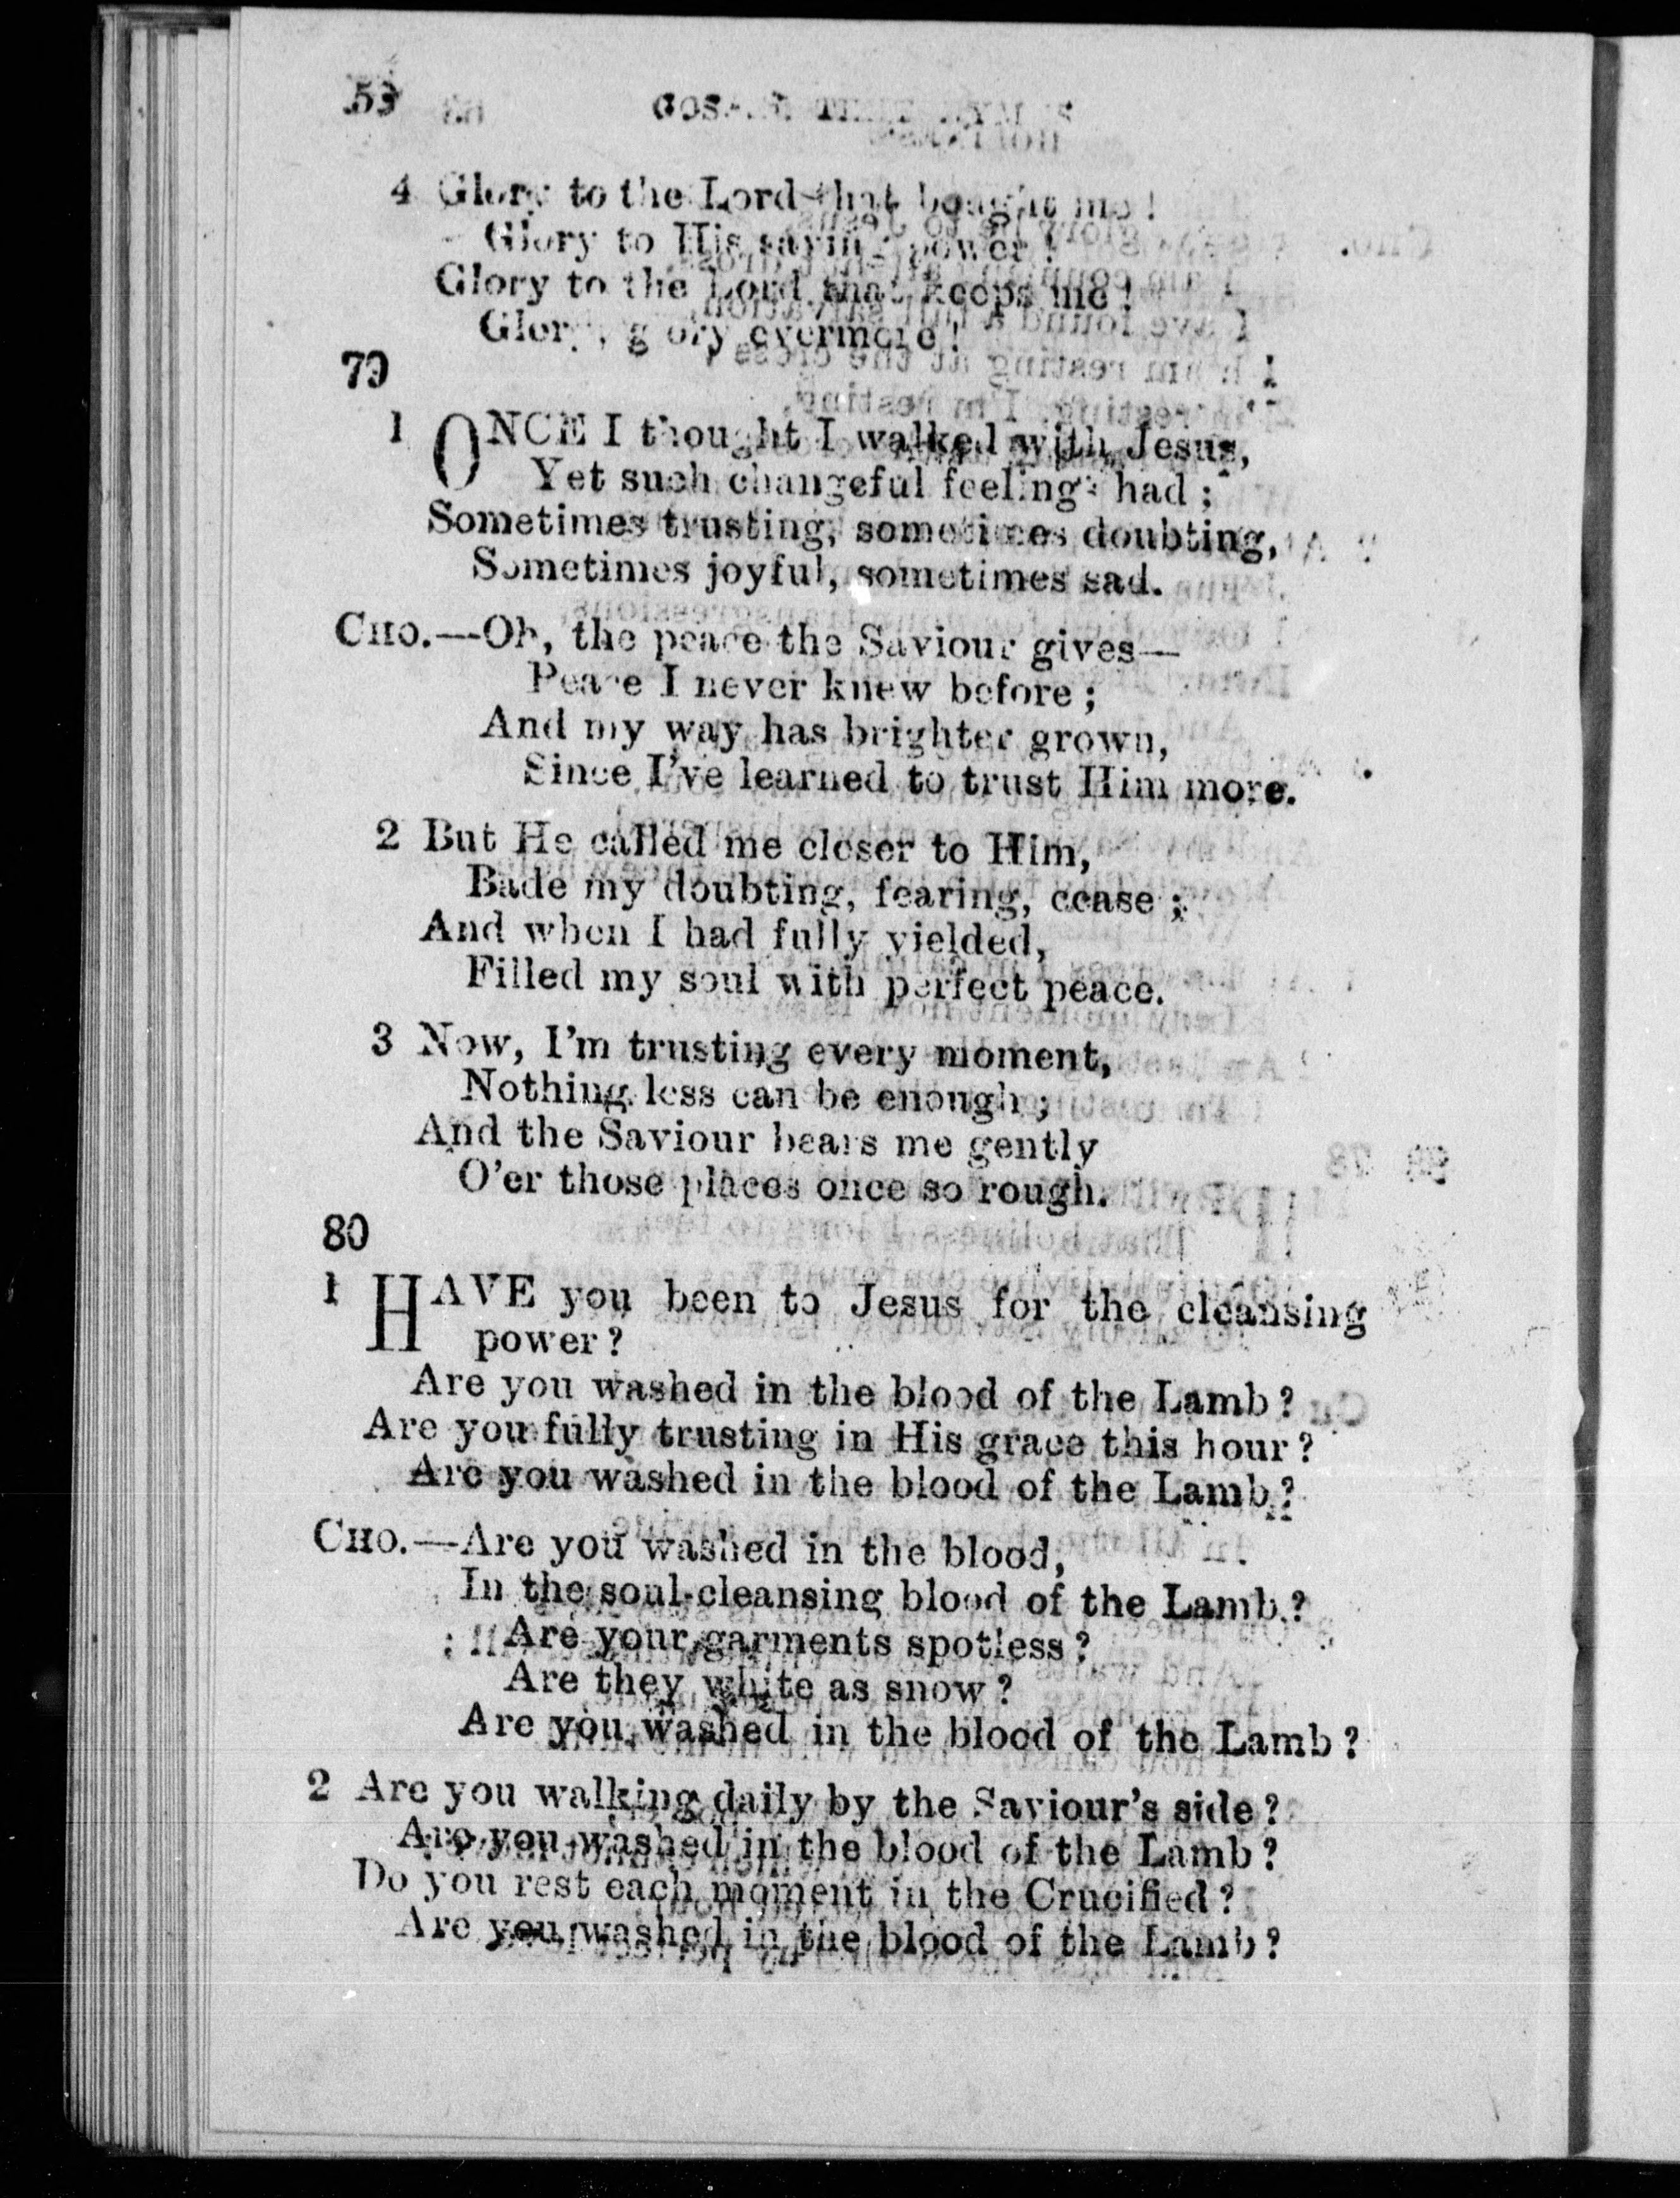 4 Glory to the Lord that bought me!
Glory to His saving power!
Glory to the Lord that keeps me!
Glory, glory evermore!
79
1 ONCE I thought I walked with Jesus,
Yet such changeful feelings had;
Sometimes trusting, sometimes doubting,
Sometimes joyful, sometimes sad.
CHO.—Oh, the peace the Saviour gives—
Peace I never knew before;
And my way has brighter grown,
Since I've learned to trust Him more.
2 But He called me closer to Him,
Bade my doubting, fearing, cease;
And when I had fully yielded,
Filled my soul with perfect peace.
3 Now, I'm trusting every moment,
Nothing less can be enough;
And the Saviour bears me gently
O'er those places once so rough.
80
1 HAVE you been to Jesus for the cleansing
power?
Are you washed in the blood of the Lamb?
Are you fully trusting in His grace this hour?
Are you washed in the blood of the Lamb?
CHO.—Are you washed in the blood,
In the soul-cleansing blood of the Lamb?
Are your garments spotless?
Are they white as snow?
Are you washed in the blood of the Lamb?
2 Are you walking daily by the Saviour's side?
Are you washed in the blood of the Lamb?
Do you rest each moment in the Crucified?
Are you washed in the blood of the Lamb?